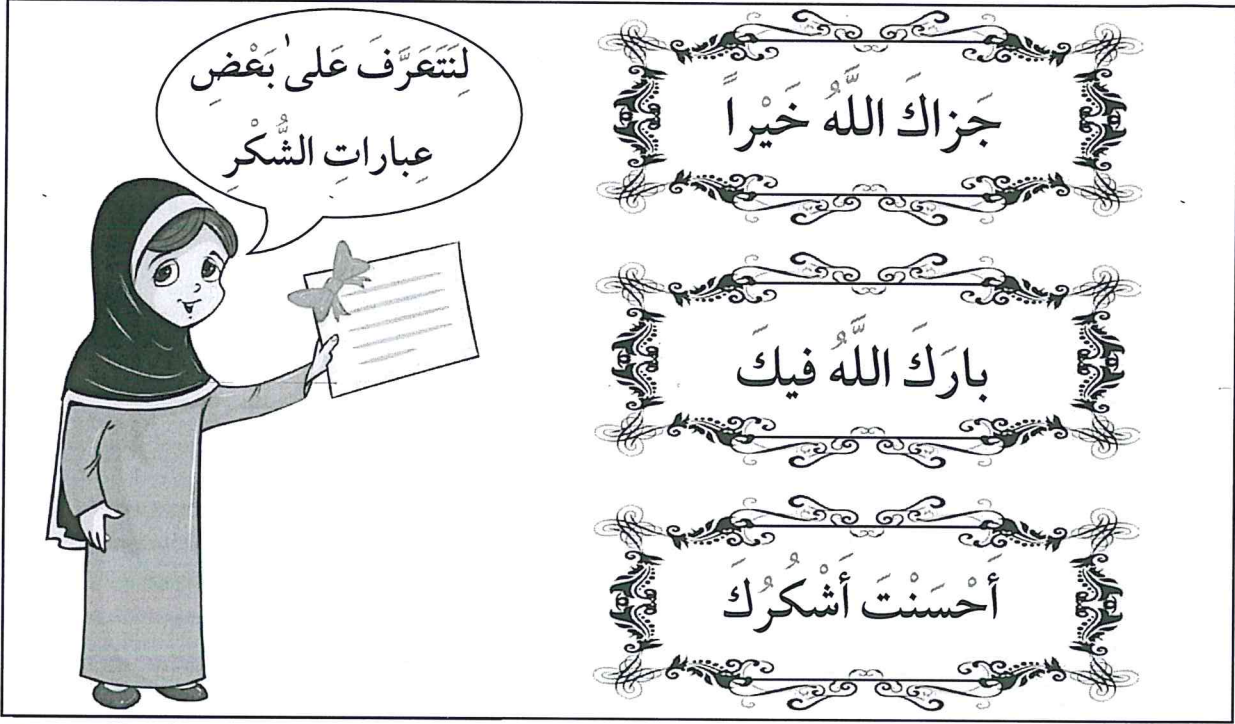 لِنَتَعَرَّفَ عَلىٰ بَعْضِ
عِباراتِ الشُّكْرِ
جَزاكَ اللَّهُ خَيْراً
بارَكَ اللَّهُ فيكَ
أَحْسَنْتَ أَشْكُرُكَ